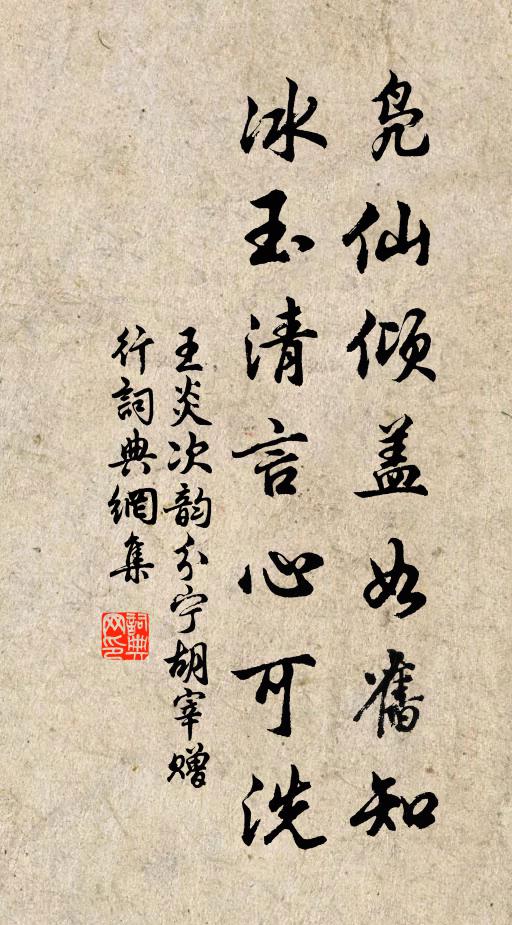 凫仙倾盖如旧知
冰玉清言心可洗
王炎次韵分宁胡宰赠
行詞典網集
詞典网印